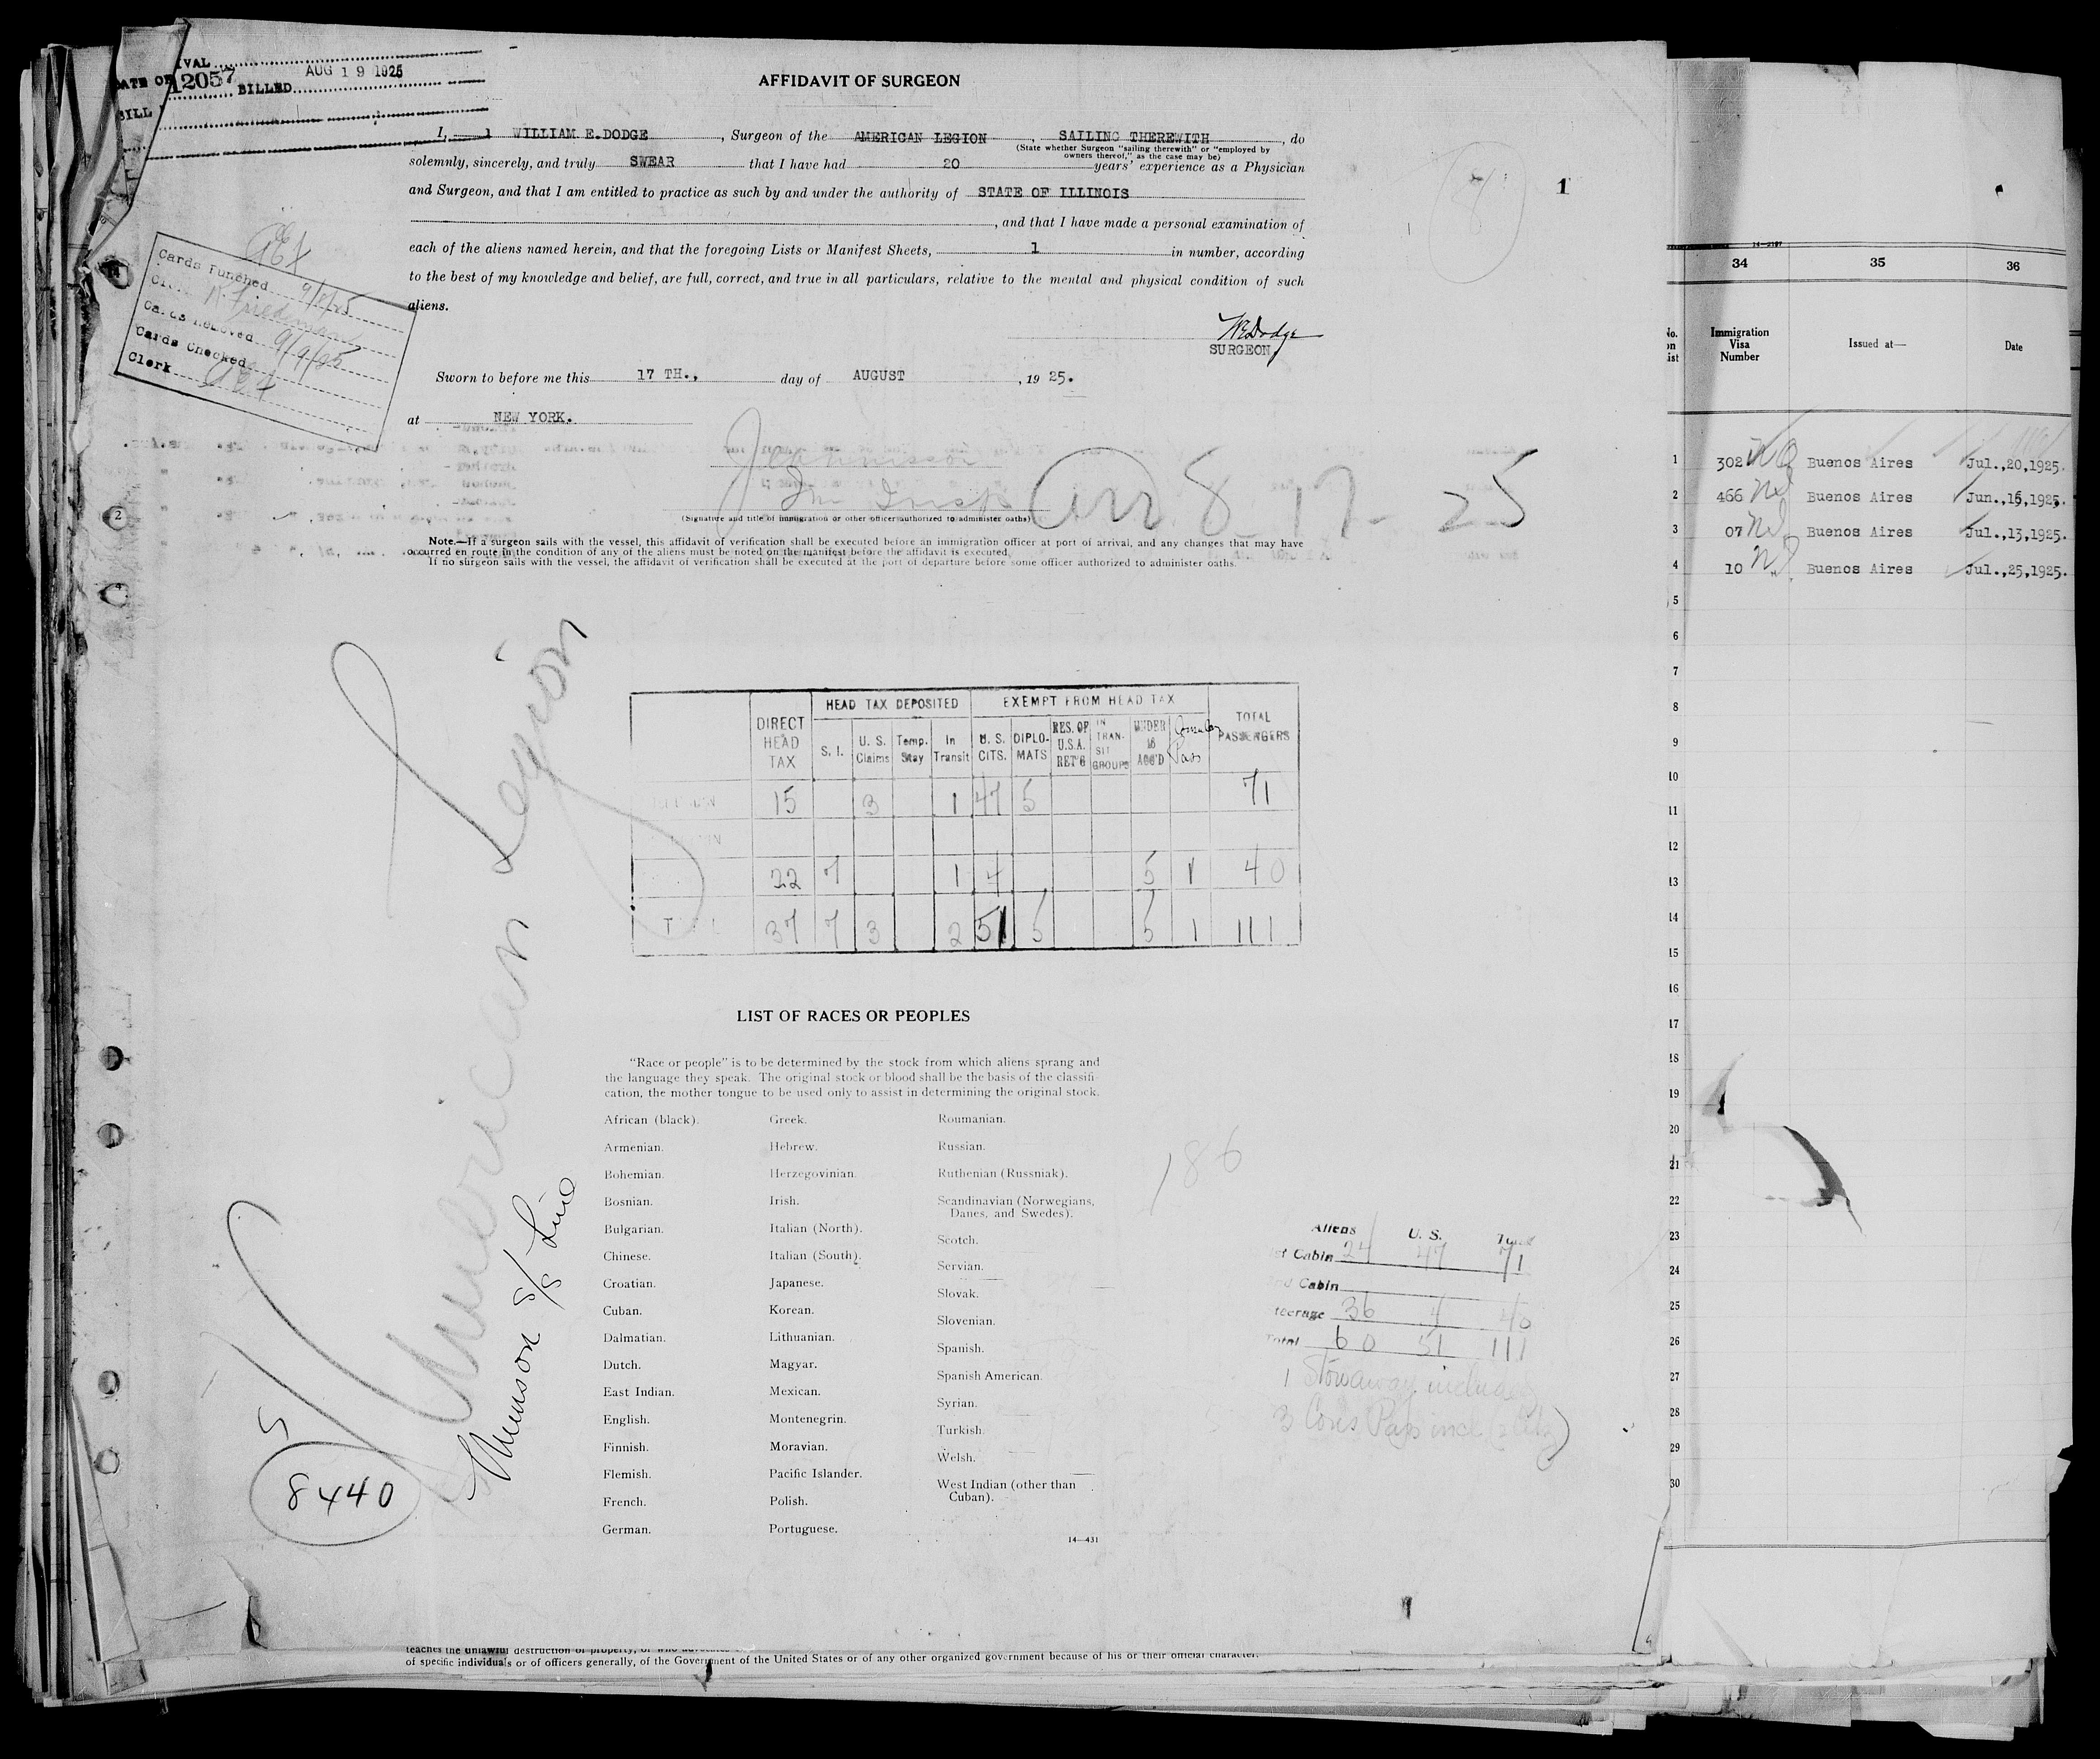 IVAL
DATE OF 12057 BILLED AUG 19 1925
BILL
AFFIDAVIT OF SURGEON
I, 1 WILLIAM E.DODGE, Surgeon of the AMERICAN LEGION, SAILING THEREWITH, do
(State whether Surgeon "sailing therewith" or "employed by
owners thereof," as the case may be)
solemnly, sincerely, and truly SWEAR that I have had 20 years' experience as a Physician
and Surgeon, and that I am entitled to practice as such by and under the authority of STATE OF ILLINOIS
, and that I have made a personal examination of
each of the aliens named herein, and that the foregoing Lists or Manifest Sheets, 1 in number, according
to the best of my knowledge and belief, are full, correct, and true in all particulars, relative to the mental and physical condition of such
aliens.
WEDodge
SURGEON
Sworn to before me this 17 TH., day of AUGUST, 19 25.
at NEW YORK.
Arr 8 - 17 - 25
(Signature and title of immigration or other officer authorized to administer oaths)
Note.—If a surgeon sails with the vessel, this affidavit of verification shall be executed before an immigration officer at port of arrival, and any changes that may have
occurred en route in the condition of any of the aliens must be noted on the manifest before the affidavit is executed.
If no surgeon sails with the vessel, the affidavit of verification shall be executed at the port of departure before some officer authorized to administer oaths.
8
1
Cards Punched 9/9/25
N. Friedman
Cards Removed 9/9/25
Cards Checked
Clerk
American Legion
Munson S/S Line
5
8440
DIRECT HEAD TAX | HEAD TAX DEPOSITED | EXEMPT FROM HEAD TAX | TOTAL PASSENGERS
S. I. | U. S. Claims | Temp. Stay | In Transit | U. S. CITS. | DIPLO-MATS | RES. OF U.S.A. RET'G | IN TRAN-SIT GROUPS | UNDER 16 ACC'D | Pass
15 3 1 47 5 71
22 7 1 4 5 1 40
37 7 3 2 51 5 5 1 111
LIST OF RACES OR PEOPLES
"Race or people" is to be determined by the stock from which aliens sprang and
the language they speak. The original stock or blood shall be the basis of the classifi-
cation, the mother tongue to be used only to assist in determining the original stock.
African (black).
Armenian.
Bohemian.
Bosnian.
Bulgarian.
Chinese.
Croatian.
Cuban.
Dalmatian.
Dutch.
East Indian.
English.
Finnish.
Flemish.
French.
German.
Greek.
Hebrew.
Herzegovinian.
Irish.
Italian (North).
Italian (South).
Japanese.
Korean.
Lithuanian.
Magyar.
Mexican.
Montenegrin.
Moravian.
Pacific Islander.
Polish.
Portuguese.
Roumanian.
Russian.
Ruthenian (Russniak).
Scandinavian (Norwegians,
Danes, and Swedes).
Scotch.
Servian.
Slovak.
Slovenian.
Spanish.
Spanish American.
Syrian.
Turkish.
Welsh.
West Indian (other than
Cuban).
14—431
186
Aliens U. S. Total
Cabin 24 47 71
Cabin
36 4 40
Total 60 51 111
1 Stowaway included
of specific individuals or of officers generally, of the Government of the United States or of any other organized government because of his or their official character.
14—2197
34 35 36
Immigration Visa Number | Issued at— | Date
1 302 Buenos Aires Jul.,20,1925.
2 466 Buenos Aires Jun.,16,1925.
3 07 Buenos Aires Jul.,13,1925.
4 10 Buenos Aires Jul.,25,1925.
5
6
7
8
9
10
11
12
13
14
15
16
17
18
19
20
21
22
23
24
25
26
27
28
29
30